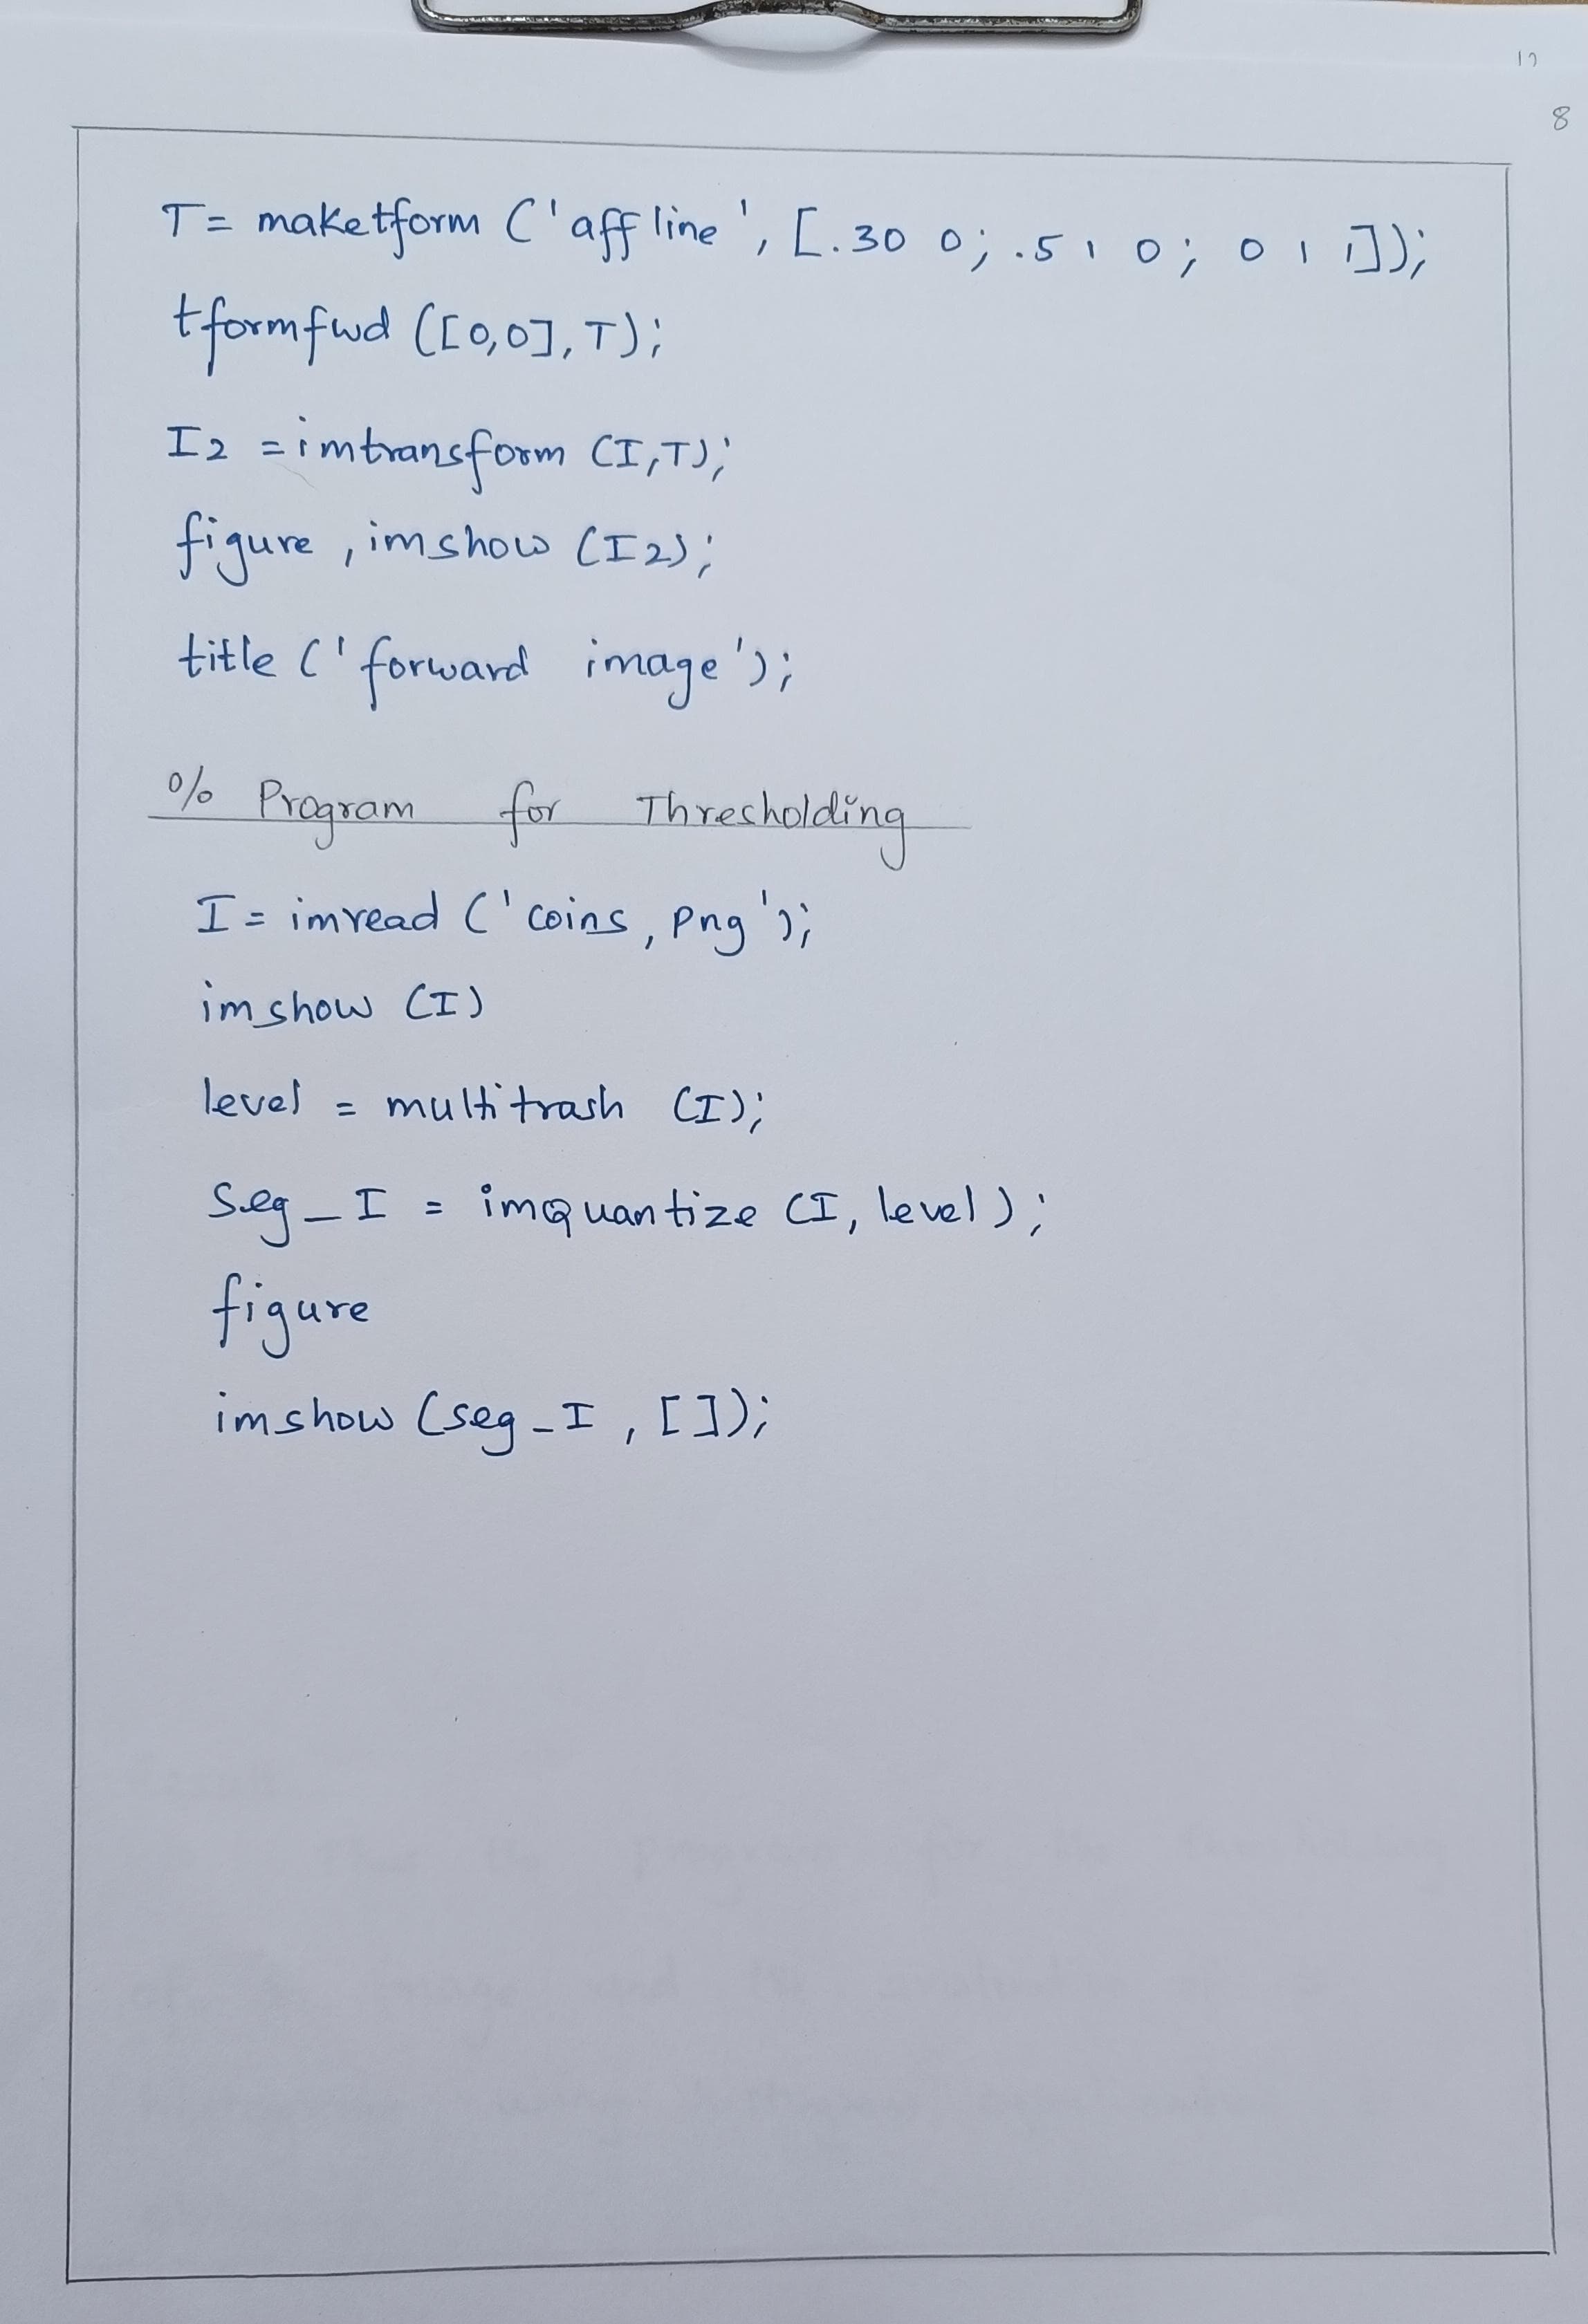 8
T= maketform ('affline', [.30 0; .5 1 0; 0 1 1]);
tformfwd ([0,0], T);
I2 = imtransform (I,T);
figure , imshow (I2);
title (' forward image');
% Program for Thresholding
I = imread (' coins, png');
imshow (I)
level = multitrash (I);
Seg_I = imquantize (I, level);
figure
imshow (seg_I , []);